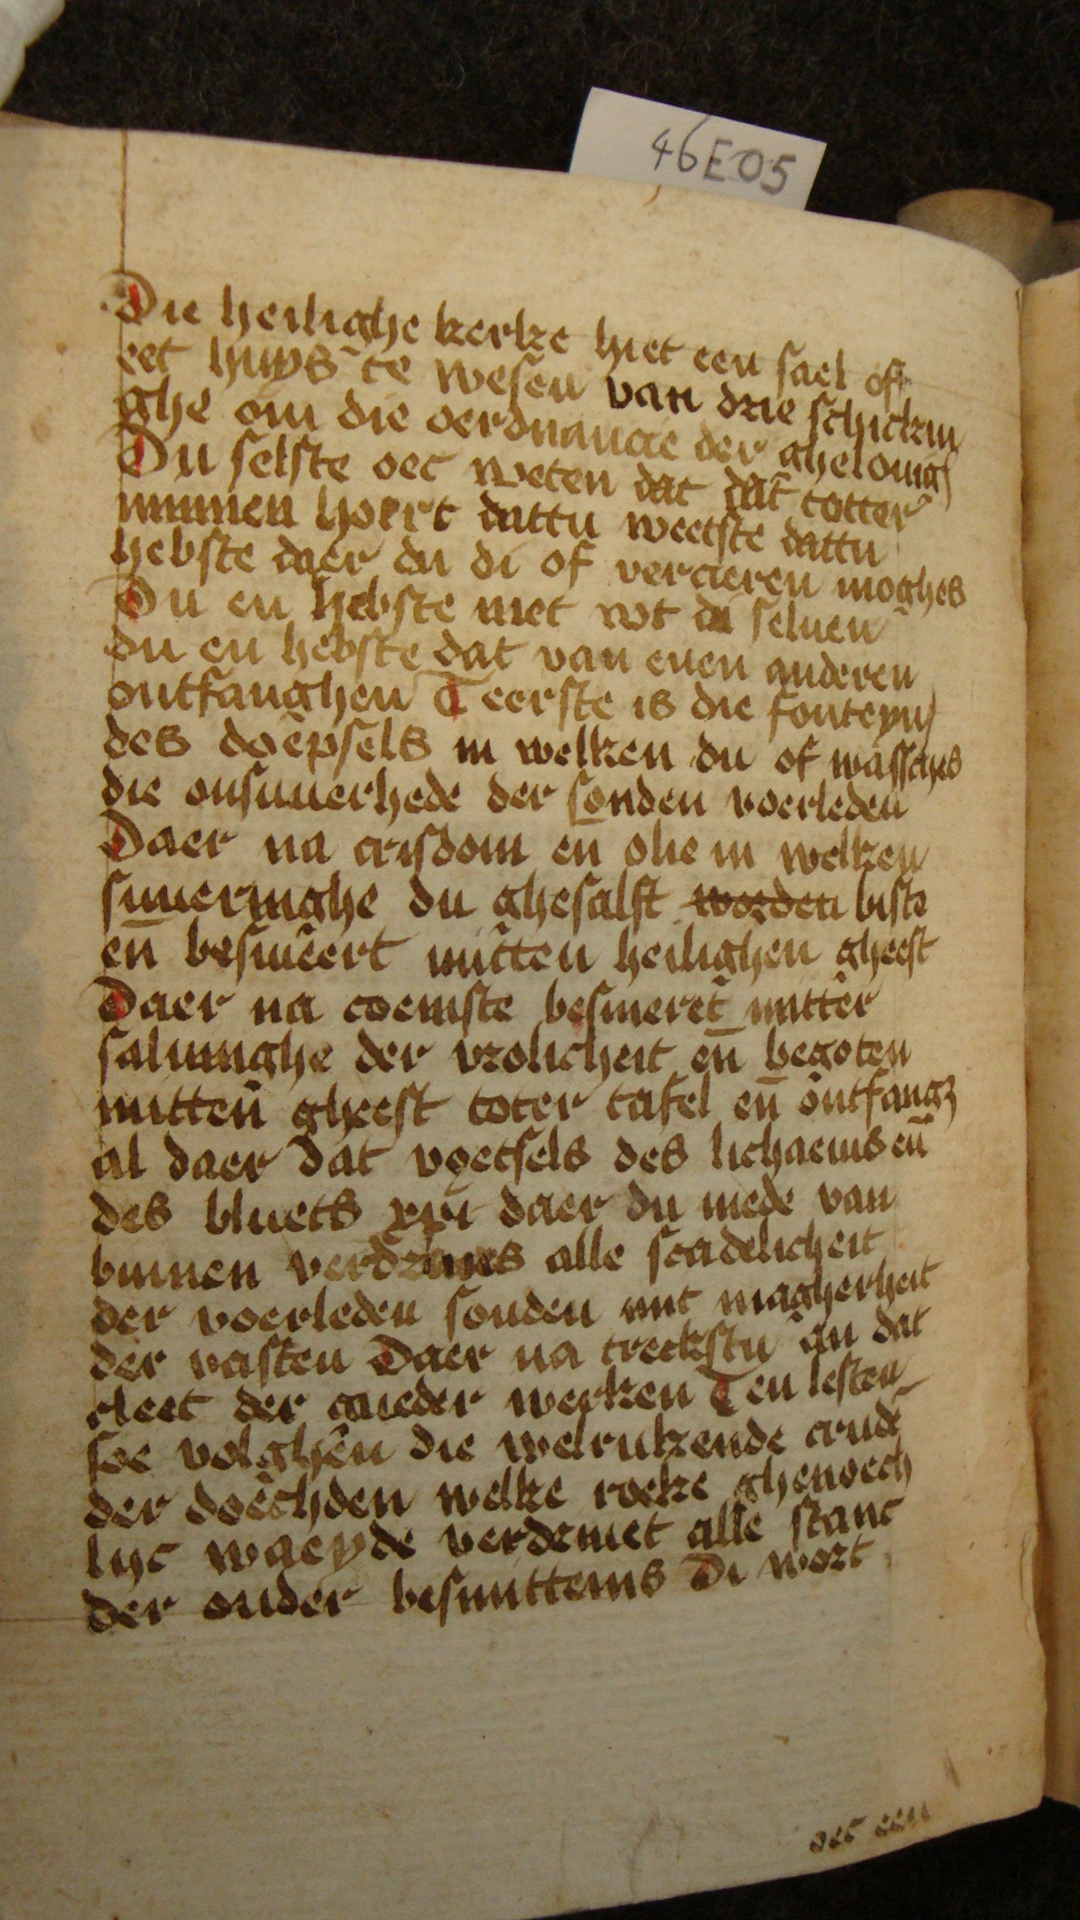 46E05
Die heilighe kerke hiet een sael oft
eet huys te wesen van drie schickin
ghe om die oerdnancie der ghelouigh
Du selste oec weten dat dat totter
minnen hoert dattu weetste dattu
hebste daer du di of vercieren moghes
Du en hebste niet wt di seluen
du en hebste dat van enen anderen
ontfanghen Teerste is die fonteyn
des doepsels in welken du of wassches
die onsuuerhede der sonden voerleden
Daer na crisdom en̄ olie in welken
suueringhe du ghesalft worden biste
en̄ besmeert mitten heilighen gheest
Daer na coemste besmeret mitter
saluinghe der vrolicheit en̄ begoten
mitten gheest toter tafel en̄ ontfangs
al daer dat voetsels des lichaems en̄
des bluets xpi daer du mede van
binnen alle scadelicheit
der voerleden sonden mit magherheit
der vasten Daer na treckstu an dat
cleet der gueder werken Ten lesten
soe volghen die welrukende crude
der doechden welke roeke ghenoech
lijc waeyde verdemet alle stanc
der ouder besmittenis Di wort
oec een